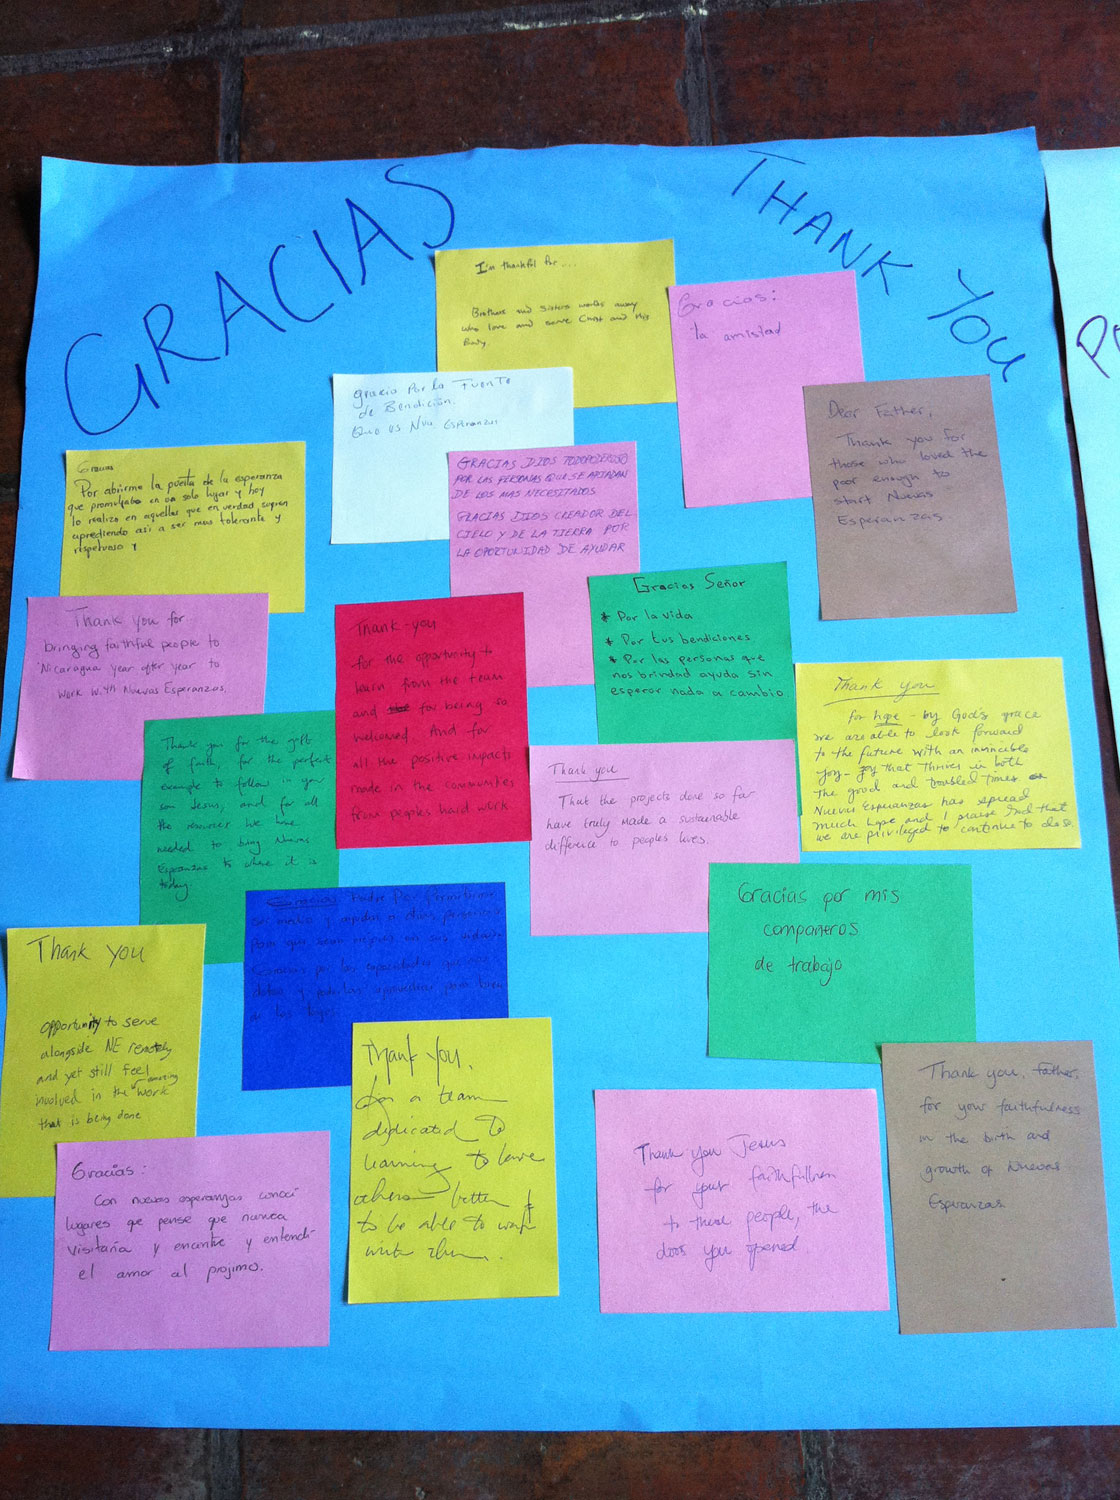 GRACIAS
THANK YOU
I'm thankful for....
Brothers and Sisters worlds away
who love and serve Christ and His
Body.
Gracias:
la amistad
gracia Por la Fuente
de Bendición.
Que es Nva. Esperanzas
Dear Father,
Thank you for
those who loved the
poor enough to
start Nuevas
Esperanzas.
Gracias
Por abrirme la puerta de la esperanza
que promulgaba en un solo lugar y hoy
lo realizo en aquellas que en verdad
aprediendo asi a ser mas tolerante y
respetuoso y
GRACIAS DIOS TODOPODEROSO
POR LAS PERSONAS QUE SE APIADAN
DE LOS MAS NECESITADOS
GRACIAS DIOS CREADOR DEL
CIELO Y DE LA TIERRA POR
LA OPORTUNIDAD DE AYUDAR
Gracias Señor
* Por la vida
* Por tus bendiciones
* Por las personas que
nos brindad ayuda sin
esperar nada a cambio.
Thank you for
bringing faithful people to
Nicaragua year after year to
work with Nuevas Esperanzas.
Thank-you
for the opportunity to
learn from the team
and for being so
welcomed. And for
all the positive impacts
made in the communities
from peoples hard work
Thank you
for hope - by God's grace
we are able to look forward
to the future with an invincible
joy - joy that thrives in both
the good and troubled times
Nuevas Esperanzas has spread
much hope and I praise God that
we are privileged to continue to do so.
Thank you for the gift
of faith, for the perfect
example to follow in your
son Jesus, and for all
the resources we have
needed to bring Nuevas
Esperanzas to where it is
today.
Thank you
That the projects done so far
have truly made a sustainable
difference to peoples lives.
Gracias por mis
compañeros
de trabajo
Gracias Padre Por Permitirme
y ayudar a otras personas
para que sean mejores en sus vidas.
Gracias por las capacidades que
Thank you
opportunity to serve
alongside NE remotely
and yet still feel
involved in the amazing work
that is being done
Thank you,
for a team
dedicated to
learning to love
others better &
to be able to work
with them.
Thank you, father,
for your faithfulness
in the birth and
growth of Nuevas
Esperanzas.
Gracias:
Con nuevas esperanzas conoci
lugares que pense que nunca
visitaria y encontre y entendi
el amor al projimo.
Thank you Jesus
for your faithfulness
to these people, the
doors you opened